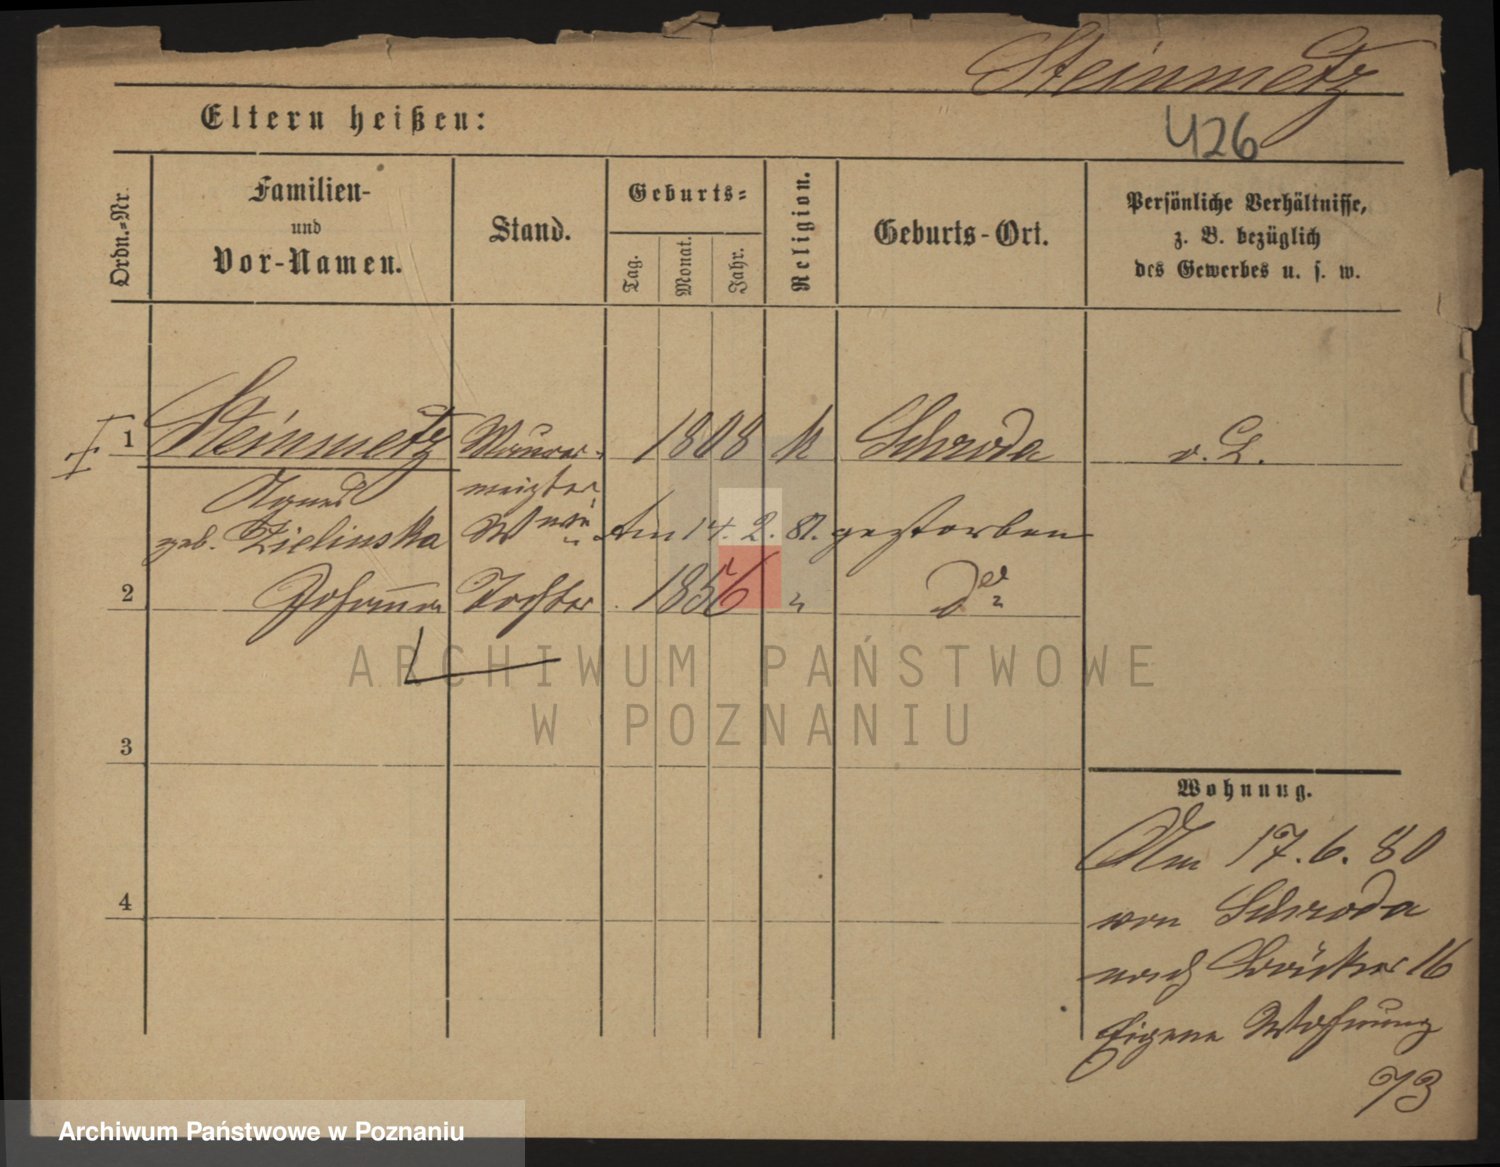 Steinmetz
426
Eltern heißen:
Ordn.-Nr.
Familien-
und
Vor-Namen.
Stand.
Geburts-
Tag.
Monat.
Jahr.
Religion.
Geburts-Ort.
Persönliche Verhältnisse,
z. B. bezüglich
des Gewerbes u. s. w.
1 Steinmetz Maurer- 1808 k Schroda o. L.
Agnes meister
geb. Zielinska Wwe Am 14. 2. 81. gestorben
2 Johanna Tochter 1856 " do
3
4
Wohnung.
Am 17. 6. 80
von Schroda
nach Bäcker 16
Eigene Wohnung
73
ARCHIWUM PAŃSTWOWE
W POZNANIU
Archiwum Państwowe w Poznaniu